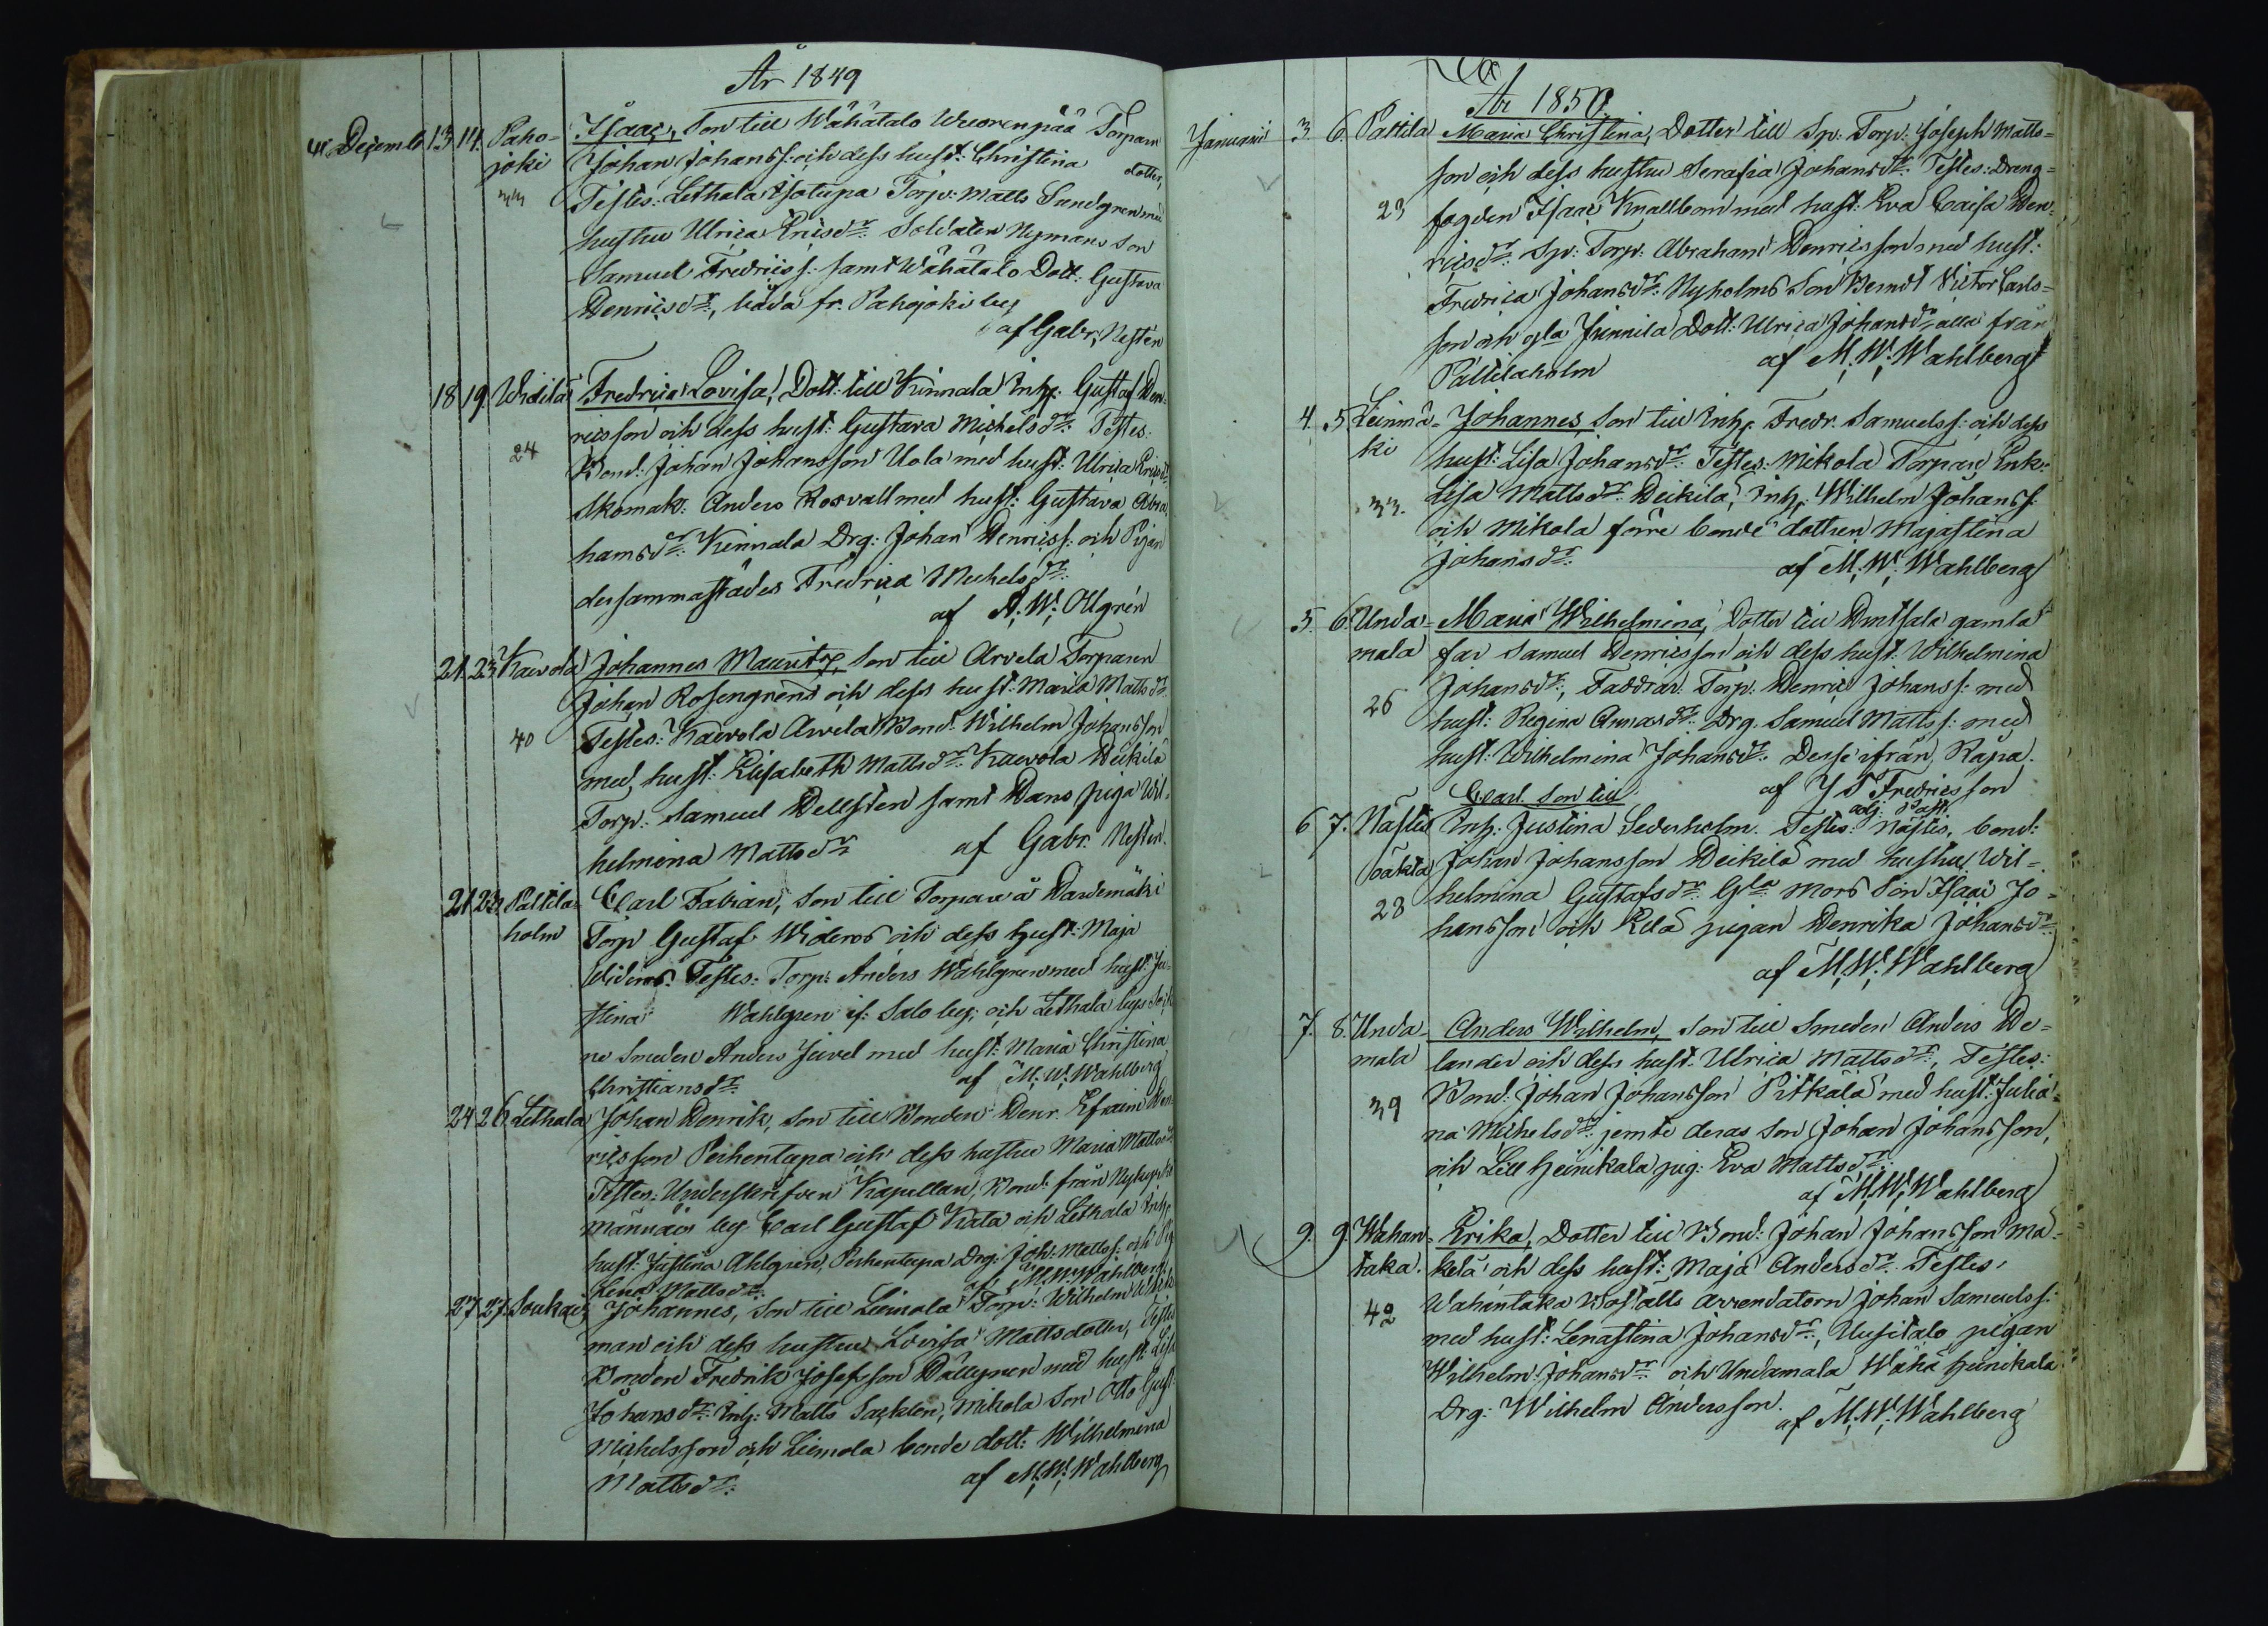 År 1849
Decemb. 13 14. Paho- Isaac, Son till Wähätalo Wuorenpää Torparn
joki Johan Johanss: och dess hust: Christina dotter,
33 Testes: Lethala Isotupa Torp: Matts Sandgren med
hustru Ulrica Ericsdr: Soldaten Nymans Son
Samuel Fredricss: samt Wähätalo Dott: Gustava
Henricsdr, båda fr. Pahojoki by
af Gabr. Nestén
18 19. Widilä Fredrica Lovisa, Dott: till Kinnala Inh: Gustaf Hen-
ricsson och dess hust: Gustava Michelsdr. Testes.
24 Bond: Johan Johansson Uola med hust: Ulrica Ericsdr
Skomak: Anders Rosvall med hust: Gustava Abra
hamsdr. Kinnala Drg: Johan Henricss: och Pigan
dersammastädes Fredrica Michelsdr:
af A. W. Ollgrén
21. 23. Kaivola Johannes Mauritz, Son till Arvela Torparen
Johan Rosengrens och dess hust: Maria Mattsdr.
40 Testes: Kaivola Arvela Bond: Wilhelm Johansson
med hust: Elisabeth Mattsdr. Kaivola Heikilä
Torp: Samuel Hellsten samt Hans piga Wil-
helmina Mattsdr. af Gabr. Nestén.
21 23 Paltila- Carl Fabian, Son till Torpare å Hardemäki
holm Torp Gustaf Wideros och dess hust: Maja
Wideros. Testes: Torp: Anders Wahlgren med hust: Ju-
stina Wahlgren if: Salo by, och Lethala bys Sock
ne Smeden Anders Juvel med hust: Maria Christina
Christiansdr. af M. W. Wahlberg
24 26. Lethala Johan Henrik, Son till Bonden Henr. Efraim Hen
ricsson Perhentupa och dess hustru Maria Mattsdr.
Testes: Underskrifven Kapellan, Bond: från Nykyrko
Männäis by Carl Gustaf Kala och Lethala Inh:
hust: Justina Ahlgren, Perhentupa Drg: Joh: Mattss: och Pig
Lena Mattsdr. af M. W. Wahlberg.
27. 27. Soukais Johannes, Son till Liimola Torp: Wilhelm
man och dess hustru Lovisa Mattsdotter, Testes
Bonden Fredrik Josefsson Hällynen med hust: Lisa
Johansdr: Inh: Matts Sacklen, Mikola Son Otto Gust:
Michelsson och Liimola bonde dott: Wilhelmina
Mattsdr. af M. W. Wahlberg
År 1850
Januarii 3. 6. Paltila Maria Christina, Dotter till Sp: Torp: Joseph Matts-
son och dess hustru Serafia Johansdr. Testes: Dräng-
23 fogden Isaac Knallbom med hust: Eva Caisa Hen-
ricsdr: Sp: Torp: Abraham Henricsson med hust:
Fredrica Johansdr: Nyholms Son Berndt Victor Carls-
son och gla Junnila Dott: Ulrica Johansdr alla från
Paltilaholm af M. W. Wahlberg
4. 5. Leinmä- Johannes, Son till Inh: Fredr. Samuelss: och dess
ki hust: Lisa Johansdr: Testes: Mikola Torpare Enk:
33. Lisa Mattsdr. Heikilä, Inh: Wilhelm Johanss:
och Mikola förre bonde dottren Majastina
Johansdr. af M. W. Wahlberg
5. 6. Unda- Maria Wilhelmina, Dotter till Hintsala gamla
mala far Samuel Henricsson och dess hust: Wilhelmina
26 Johansdr:, Faddrar Torp: Henric Johanss: med
hust: Regina Annasdr: Drg. Samuel Mattss: med
hust: Wilhelmina Johansdr. Desse ifrån Räpä.
af Y S Fredricsson
adj: Past:
Carl Son till
6 7. Nästis Inh: Justina Sederholm. Testes: Nästis, bond:
Johan Johansson Heikilä med hustru Wil-
28 helmina Gustafsdr. Gla Mors Son Isaac Jo-
hansson och Kilä pigan Henrika Johansdr
af M. W. Wahlberg
7. 8. Unda- Anders Wilhelm, Son till Smeden Anders He-
mala lander och dess hust: Ulrica Mattsdr:, Testes:
39 Bond: Johan Johansson Pitkälä med hust: Julia-
na Michelsdr: jemte deras Son Johan Johansson,
och Lill Heinikala pig: Eva Mattsdr.
af M. W. Wahlberg
9. 9. Wahan- Erika, Dotter till Bond: Johan Johansson Mä-
taka. kelä och dess hust: Maja Andersdr. Testes,
42 Wahantaka Boställs Arrendatorn Johan Samuelss:
med hust: Lenastina Johansdr., Uusitalo pigan
Wilhelm: Johansdr. och Undamala Wähä Heinikala
Drg: Wilhelm Andersson. af M. W. Wahlberg